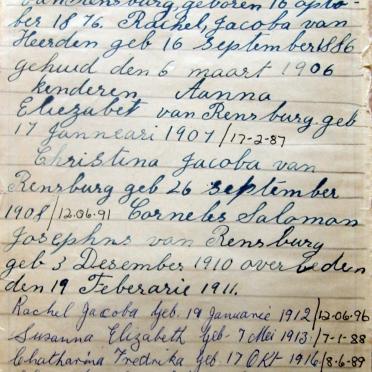 van Rensburg, geboren 16 octo-
ber 1876. Rachel, Jacoba van
Heerden geb 16 september 1886
gehuud den 6 maart 1906
kinderen Aanna
Eliezabet van Rensburg. geb
17 Janneari 1907 / 17-2-87
Christina Jacoba van
Rensburg geb 26 september
1908 / 12.06.91 Corneles Saloman
Josephns van Rensburg
geb 3 Desember 1910 overleden
den 19 Feberarie 1911.
Rachel Jacoba Geb. 19 Januarie 1912 / 12.06-96
Susanna Elizabeth geb - 7 Mei 1913. / 7-1-88
Chatharina Fredrika geb 17 Okt 1916 / 8-6-89